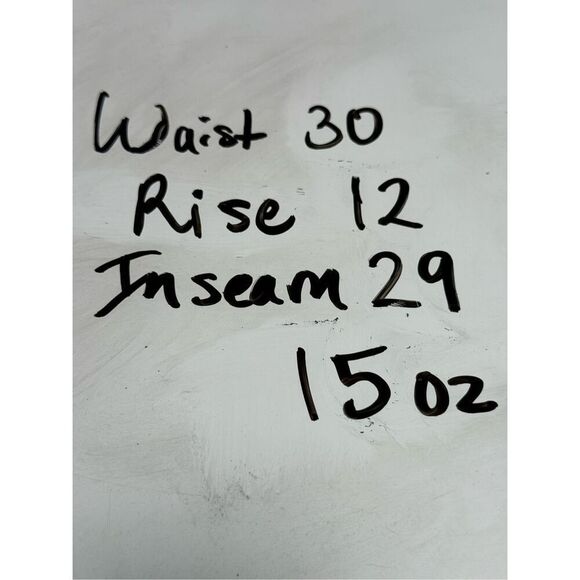 Waist 30
Rise 12
Inseam 29
15 oz